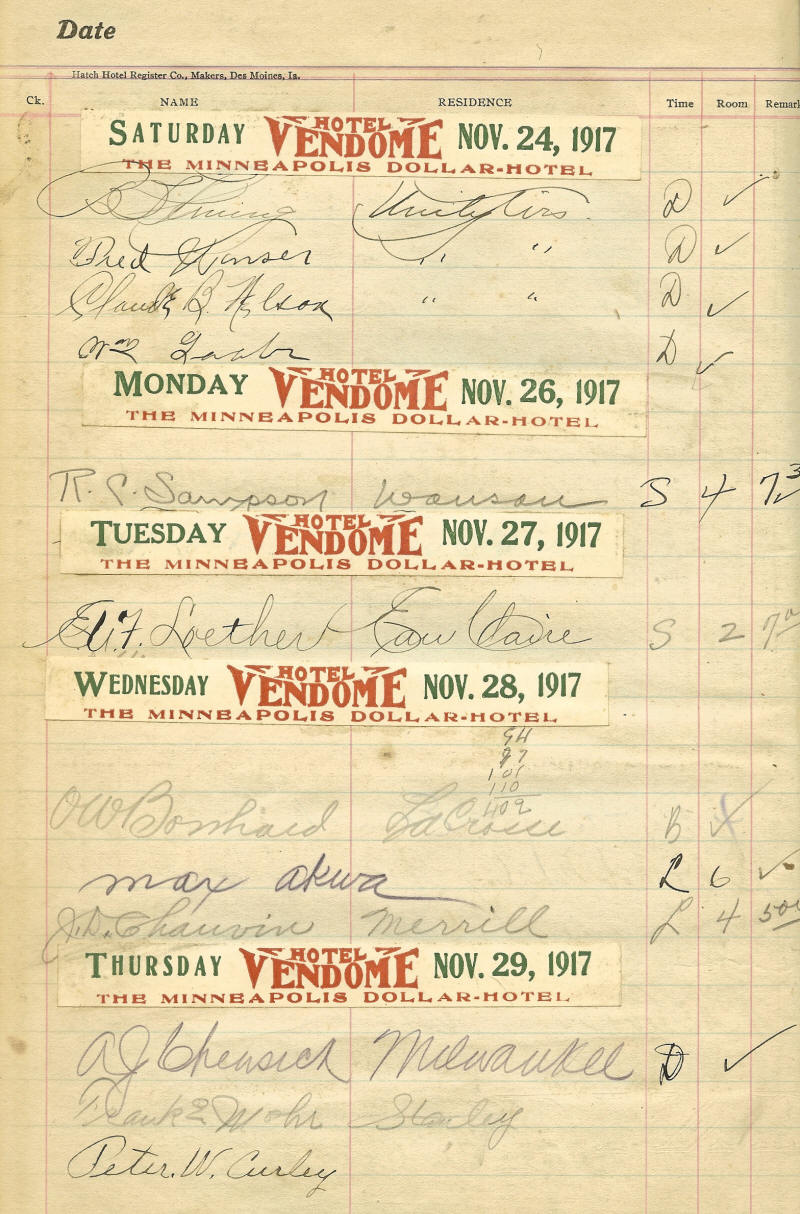 Date
Hatch Hotel Register Co., Makers, Des Moines, Ia.
Ck. NAME RESIDENCE Time Room Remark
SATURDAY HOTEL VENDOME NOV. 24, 1917
THE MINNEAPOLIS DOLLAR-HOTEL
Unity D ✓
Fred " " D ✓
Claude B. Nelson " " D ✓
Wm D ✓
MONDAY HOTEL VENDOME NOV. 26, 1917
THE MINNEAPOLIS DOLLAR-HOTEL
R. C. Sampson Wausau S 4 7
TUESDAY HOTEL VENDOME NOV. 27, 1917
THE MINNEAPOLIS DOLLAR-HOTEL
Loether Eau Claire S 2 7
WEDNESDAY HOTEL VENDOME NOV. 28, 1917
THE MINNEAPOLIS DOLLAR-HOTEL
94
97
101
110
409
OW Bonhard LaCrosse B
max akwa L 6 ✓
J.D. Chauvin Merrill L 4 500
THURSDAY HOTEL VENDOME NOV. 29, 1917
THE MINNEAPOLIS DOLLAR-HOTEL
A J Milwaukee D ✓
Frank E Mohr Stanley
Peter. W. Curley